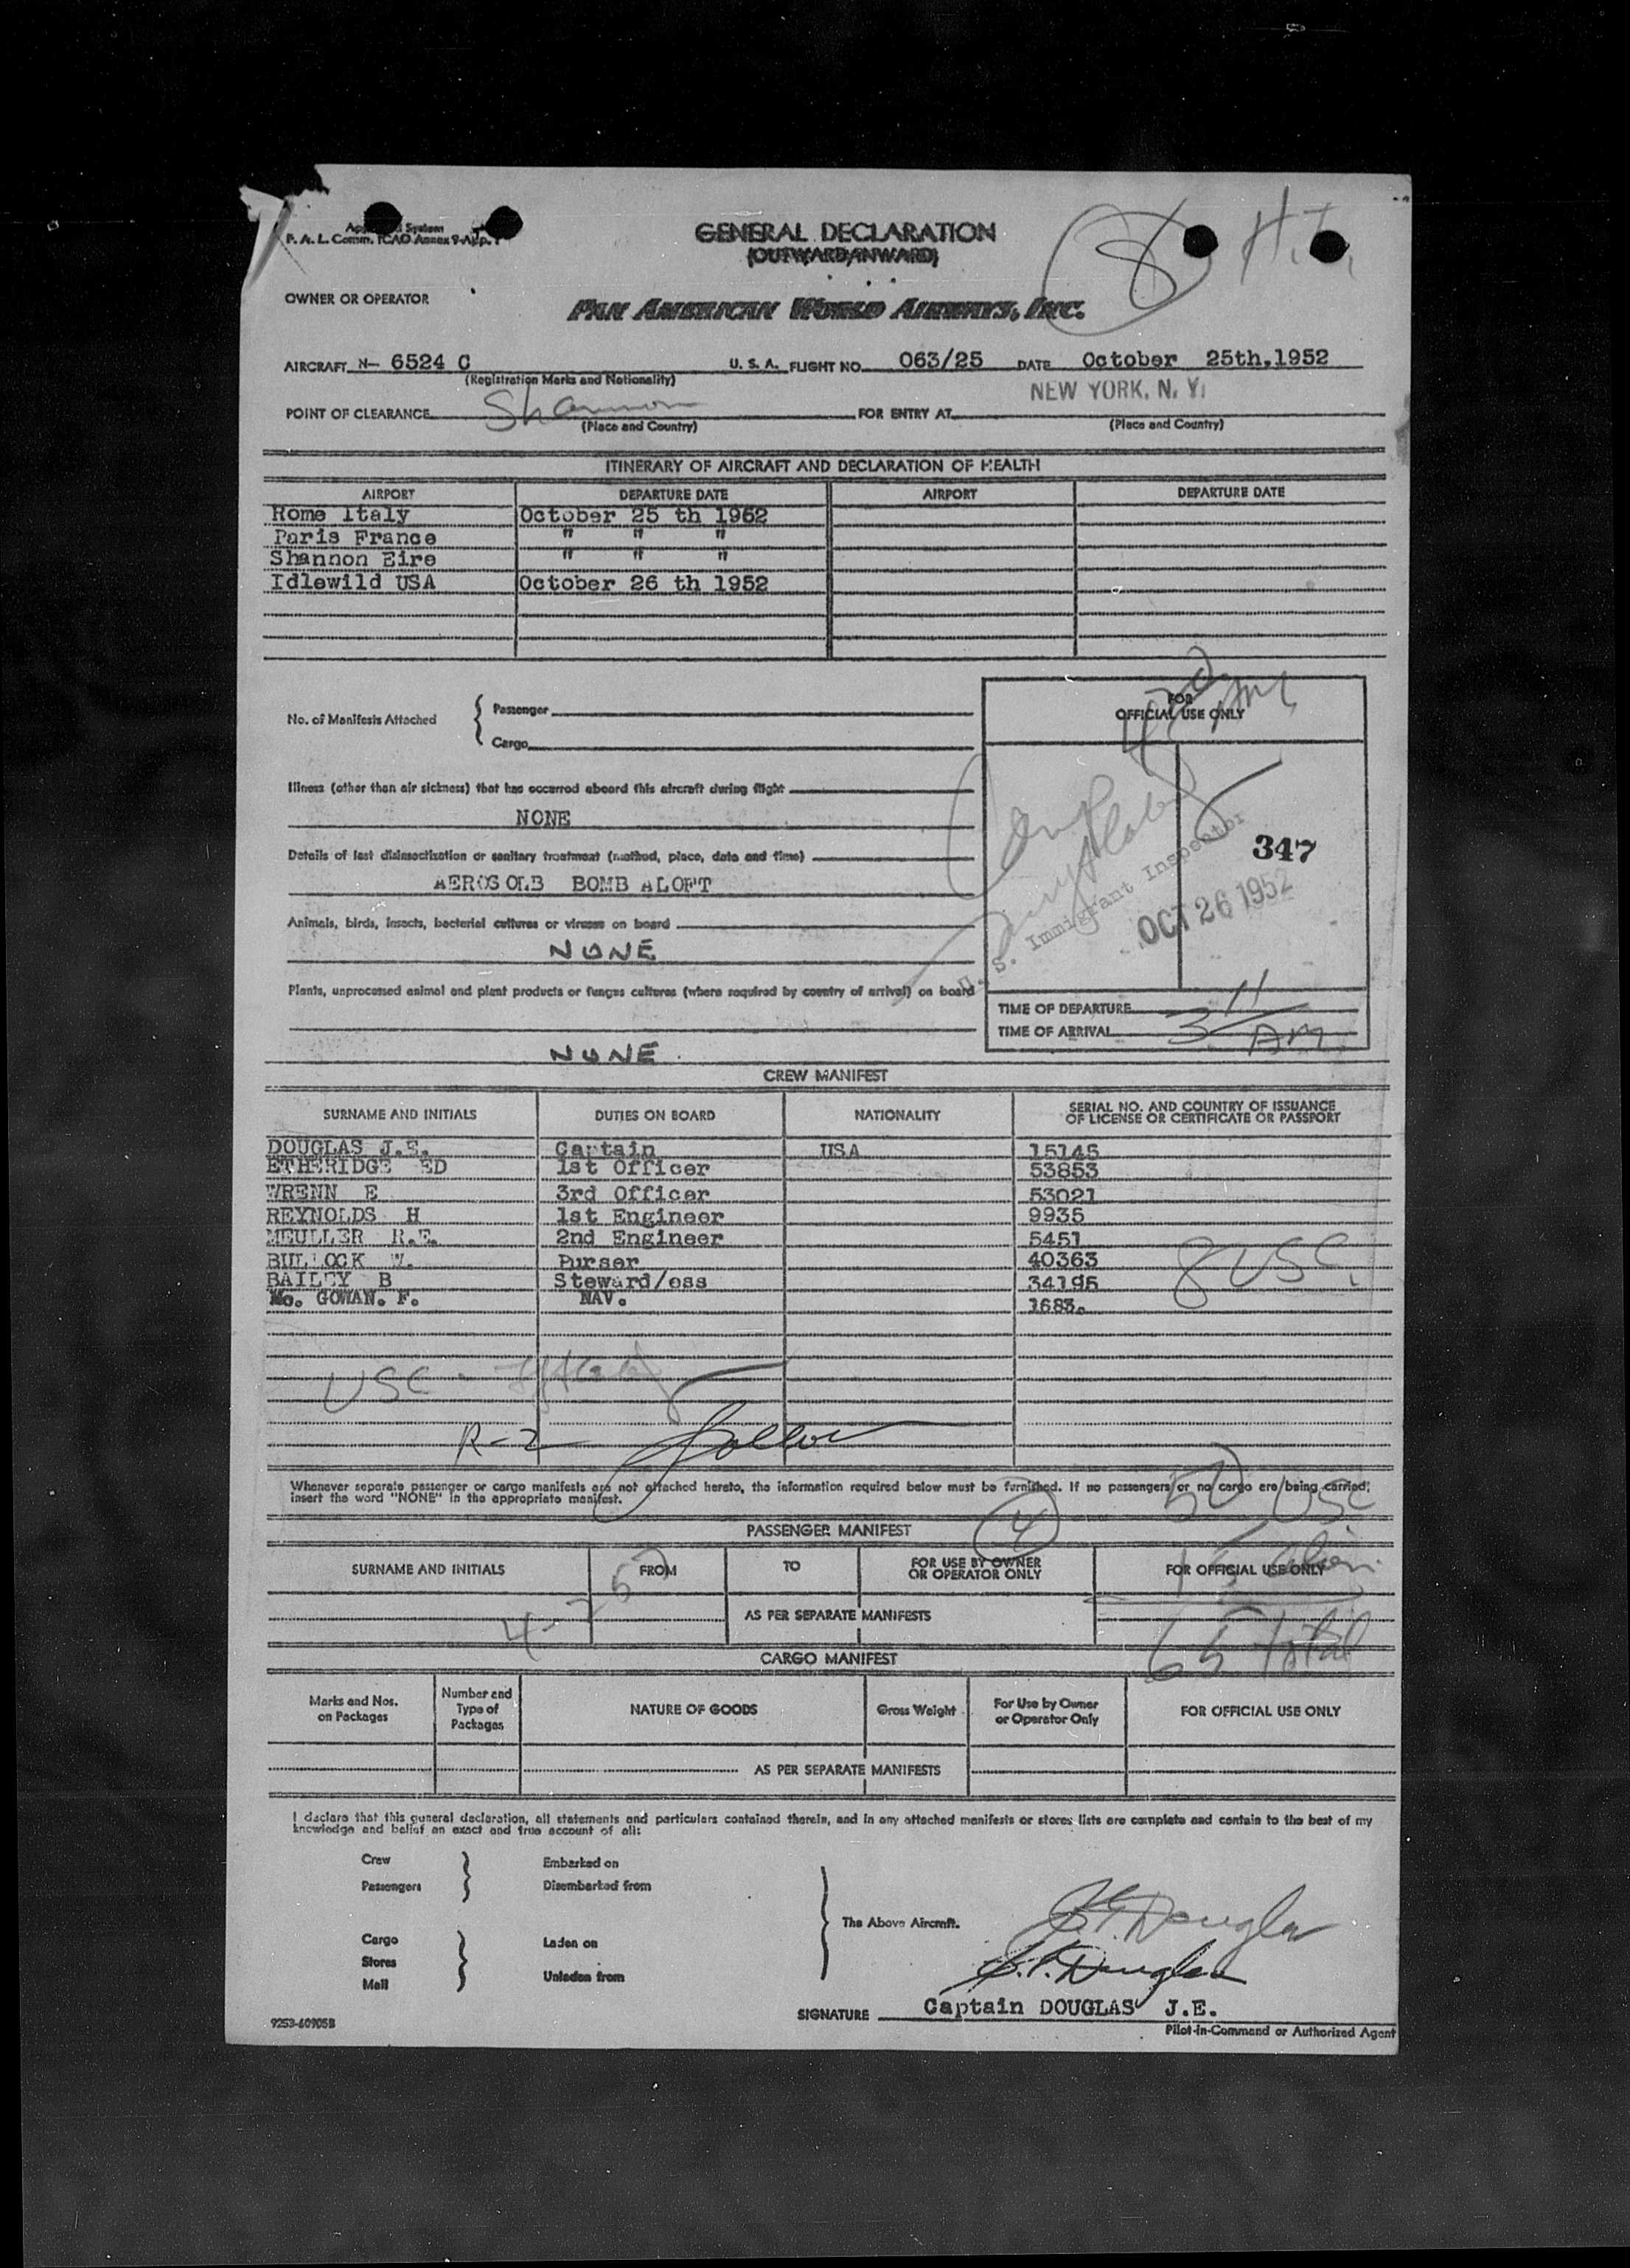 P. A. L. Comm. ICAO Annex 9-App. 1
System
GENERAL DECLARATION
(OUTWARD/INWARD)
8
OWNER OR OPERATOR
PAN AMERICAN WORLD AIRWAYS, INC.
AIRCRAFT N- 6524 C U. S. A. FLIGHT NO. 063/25 DATE October 25th,1952
(Registration Marks and Nationality)
NEW YORK, N. Y.
POINT OF CLEARANCE Shannon FOR ENTRY AT
(Place and Country) (Place and Country)
ITINERARY OF AIRCRAFT AND DECLARATION OF HEALTH
AIRPORT DEPARTURE DATE AIRPORT DEPARTURE DATE
Rome Italy October 25 th 1952
Paris France " " "
Shannon Eire " " "
Idlewild USA October 26 th 1952
No. of Manifests Attached { Passenger
Cargo
FOR
OFFICIAL USE ONLY
Illness (other than air sickness) that has occurred aboard this aircraft during flight
NONE
Details of last disinsectization or sanitary treatment (method, place, date and time)
AEROSOLB BOMB ALOFT
Animals, birds, insects, bacterial cultures or viruses on board
NONE
Plants, unprocessed animal and plant products or fungus cultures (where required by country of arrival) on board
NONE
347
U. S. Immigrant Inspector
OCT 26 1952
TIME OF DEPARTURE
TIME OF ARRIVAL 3 11 AM
CREW MANIFEST
SURNAME AND INITIALS DUTIES ON BOARD NATIONALITY SERIAL NO. AND COUNTRY OF ISSUANCE
OF LICENSE OR CERTIFICATE OR PASSPORT
DOUGLAS J.E. Captain USA 15146
ETHERIDGE ED 1st Officer 53853
WRENN E 3rd Officer 53021
REYNOLDS H 1st Engineer 9935
MEULLER R.E. 2nd Engineer 5451
BULLOCK W. Purser 40363
BAILEY B Steward/ess 34196
Mc. GOWAN. F. NAV. 1683.
8 USC.
USC
R-2
Whenever separate passenger or cargo manifests are not attached hereto, the information required below must be furnished. If no passengers or no cargo are being carried,
insert the word "NONE" in the appropriate manifest.
50 USC
4
PASSENGER MANIFEST
SURNAME AND INITIALS FROM TO FOR USE BY OWNER
OR OPERATOR ONLY FOR OFFICIAL USE ONLY
15 alien
AS PER SEPARATE MANIFESTS
65 total
CARGO MANIFEST
Marks and Nos.
on Packages Number and
Type of
Packages NATURE OF GOODS Gross Weight For Use by Owner
or Operator Only FOR OFFICIAL USE ONLY
AS PER SEPARATE MANIFESTS
I declare that this general declaration, all statements and particulars contained therein, and in any attached manifests or stores lists are complete and contain to the best of my
knowledge and belief an exact and true account of all:
Crew Embarked on
Passengers Disembarked from
The Above Aircraft.
Cargo Laden on
Stores
Mail Unladen from
J.E. Douglas
J.E. Douglas
SIGNATURE Captain DOUGLAS J.E.
Pilot-in-Command or Authorized Agent
9253-60905B